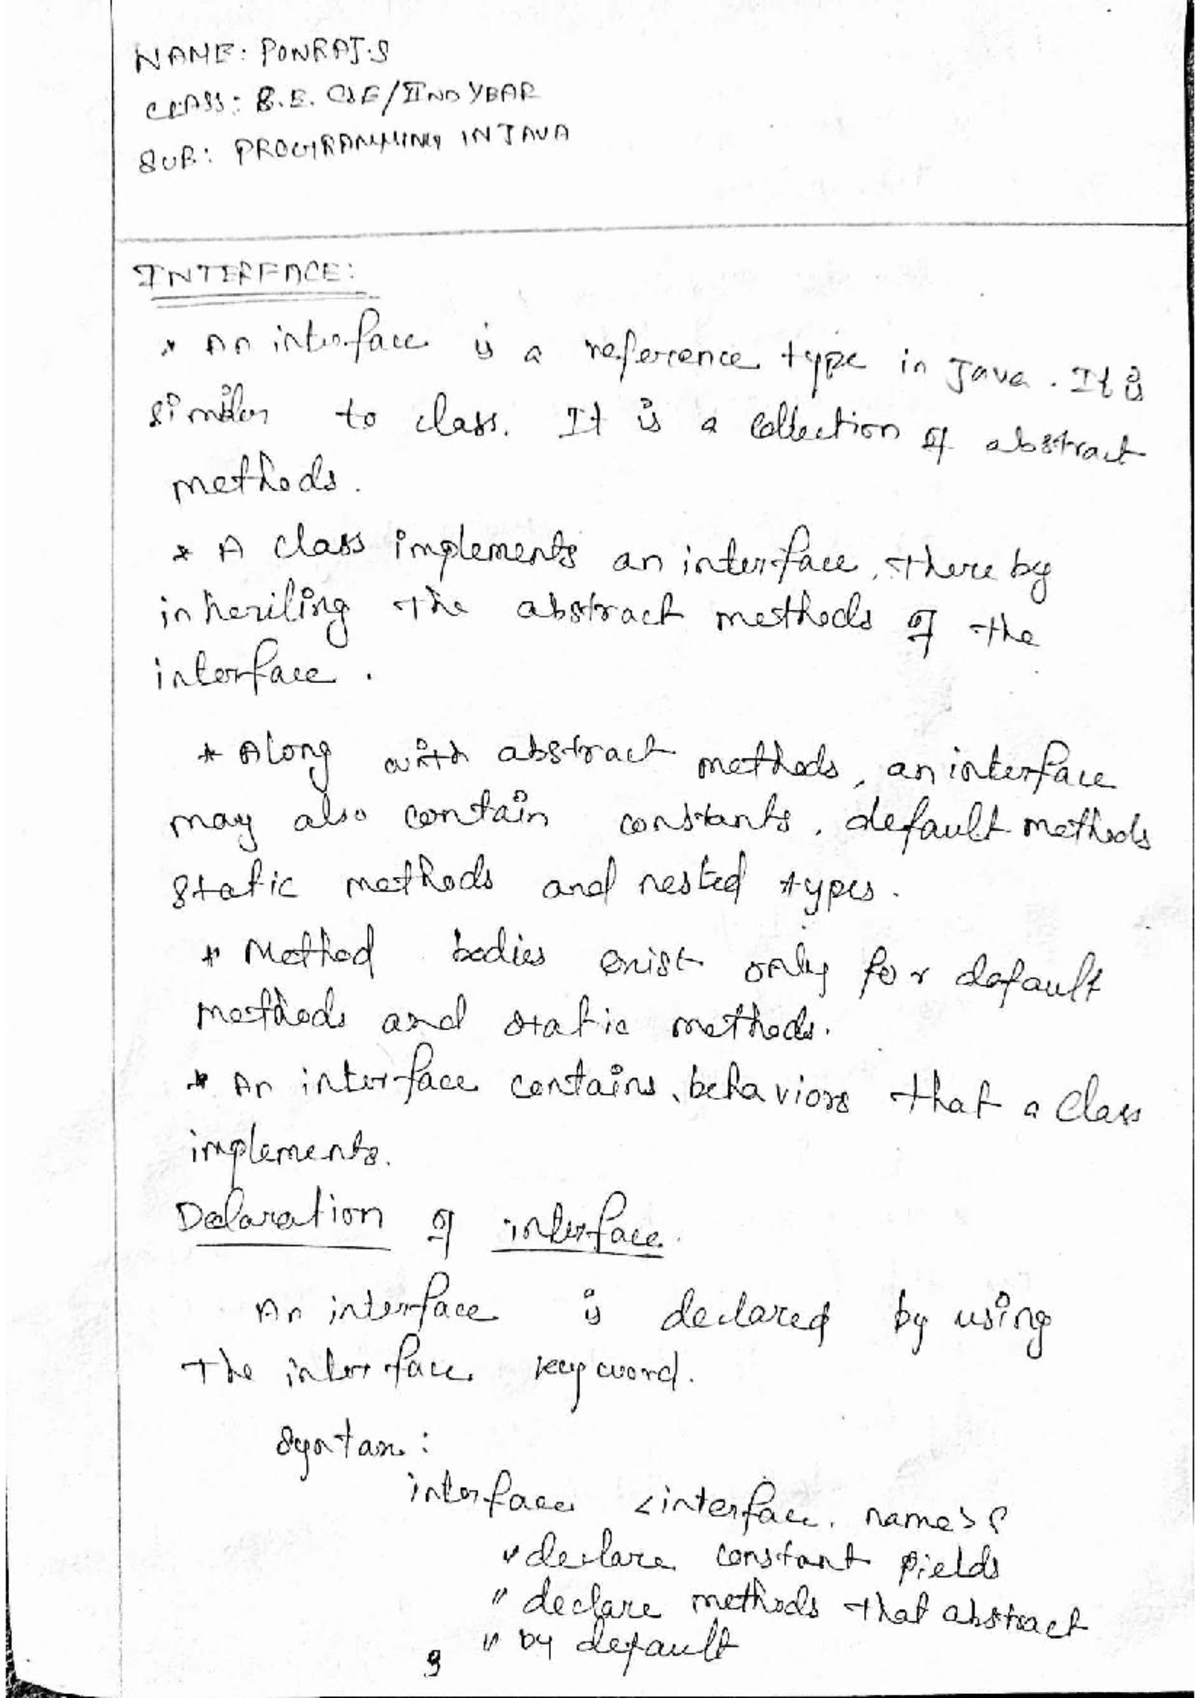 NAME: PONRAJ.S
CLASS: B.E. CSE/IIND YEAR
SUB: PROGRAMMING IN JAVA
INTERFACE:
* An interface is a reference type in Java. It is
similar to class. It is a collection of abstract
methods.
* A class implements an interface, there by
inheriling the abstract methods of the
interface.
* Along with abstract methods, an interface
may also contain constants, default methods
static methods and nested types.
* Method bodies exist only for default
methods and static methods.
* An interface contains behaviors that a class
implements.
Declaration of interface.
An interface is declared by using
the interface keyword.
Syntax:
interface <interface name>{
// declare constant fields
// declare methods that abstract
// by default
}